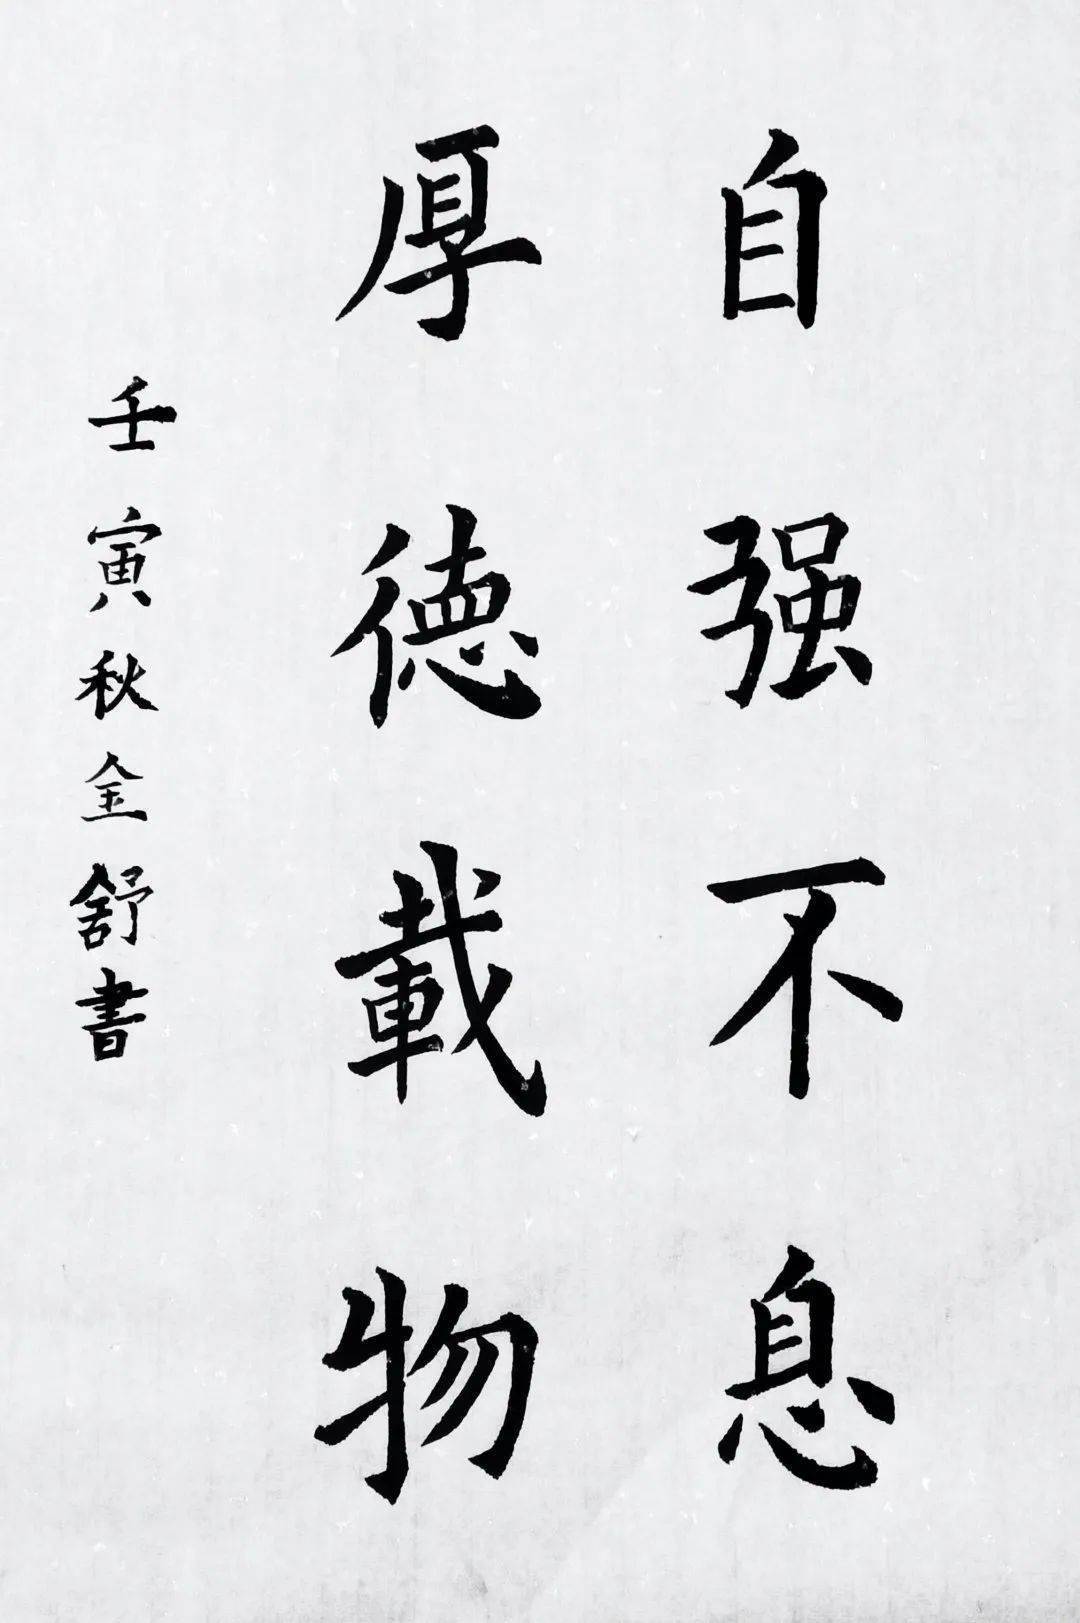 自强不息
厚德載物
壬寅秋金舒書